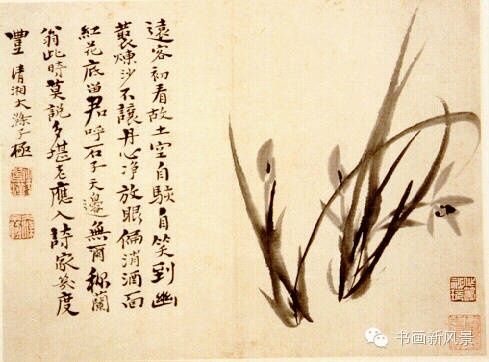 遠客初看故土空自駭自笑到幽
叢煉沙不讓丹心净放眼偏消酒面
紅花底留君呼石子天邊無爾稱蘭
翁此時莫說多堪老應入詩家幾度
豐 清湘大滌子極
书画新风景